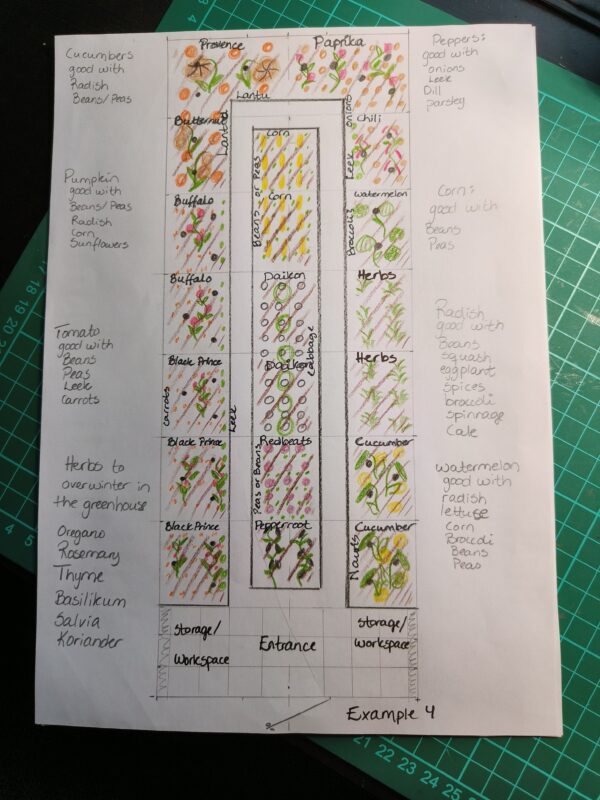 Cucumbers
good with
Radish
Beans/Peas
Pumpkin
good with
Beans/Peas
Radish
Corn
Sunflowers
Tomato
good with
Beans
Peas
Leek
Carrots
Herbs to
overwinter in
the greenhouse
Oregano
Rosemary
Thyme
Basilikum
Salvia
Koriander
Provence
Paprika
Lantu
Butternut
Buffalo
Buffalo
Black Prince
Black Prince
Black Prince
carrots
Leek
Corn
Corn
Beans or Peas
Daikon
Daikon
cabbage
Redbeats
Peas or Beans
Pepperroot
onions
Chili
Leek
watermelon
Broccoli
Herbs
Herbs
Cucumber
Cucumber
Storage/
Workspace
Entrance
Storage/
Workspace
Example 4
Peppers:
good with
onions
Leek
Dill
parsley
Corn:
good with
Beans
Peas
Radish
good with
Beans
squash
eggplant
spices
broccoli
spinnage
Cale
watermelon
good with
radish
lettuse
Corn
Broccoli
Beans
Peas
4
5
6
7
20
19
18
17
5
4
21
22
23
24
25